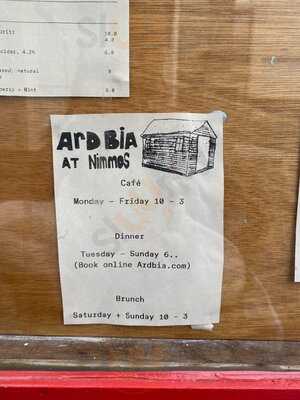 10.0
4.0
4.2%
6.0
natural
+ Mint
ARD BIA
AT NIMMOS
Café
Monday - Friday 10 - 3
Dinner
Tuesday - Sunday 6..
(Book online Ardbia.com)
Brunch
Saturday + Sunday 10 - 3